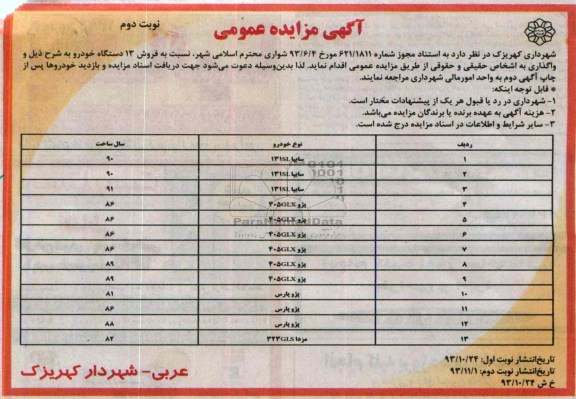 آگهی مزایده عمومی
نوبت دوم
شهرداری کهریزک در نظر دارد به استناد مجوز شماره ۶۲۱/۱۸۱۱ مورخ ۹۳/۶/۴ شواری محترم اسلامی شهر، نسبت به فروش ۱۳ دستگاه خودرو به شرح ذیل و
واگذاری به اشخاص حقیقی و حقوقی از طریق مزایده عمومی اقدام نماید. لذا بدین‌وسیله دعوت می‌شود جهت دریافت اسناد مزایده و بازدید خودروها پس از
چاپ آگهی دوم به واحد امورمالی شهرداری مراجعه نمایند.
* قابل توجه اینکه:
۱- شهرداری در رد یا قبول هر یک از پیشنهادات مختار است.
۲- هزینه آگهی به عهده برنده یا برندگان مزایده می‌باشد.
۳- سایر شرایط و اطلاعات در اسناد مزایده درج شده است.
ردیف نوع خودرو سال ساخت
۱ سایپا ۱۳۱SL ۹۰
۲ سایپا ۱۳۱SL ۹۰
۳ سایپا ۱۳۱SL ۹۱
۴ پژو ۴۰۵GLX ۸۶
۵ پژو ۴۰۵GLX ۸۶
۶ پژو ۴۰۵GLX ۸۶
۷ پژو ۴۰۵GLX ۸۶
۸ پژو ۴۰۵GLX ۸۹
۹ پژو ۴۰۵GLX ۸۹
۱۰ پژو پارس ۸۱
۱۱ پژو پارس ۸۶
۱۲ پژو پارس ۸۸
۱۳ مزدا ۳۲۳GLS ۸۲
تاریخ انتشار نوبت اول: ۹۳/۱۰/۲۴
تاریخ انتشار نوبت دوم: ۹۳/۱۱/۱
خ ش ۹۳/۱۰/۲۴
عربی- شهردار کهریزک